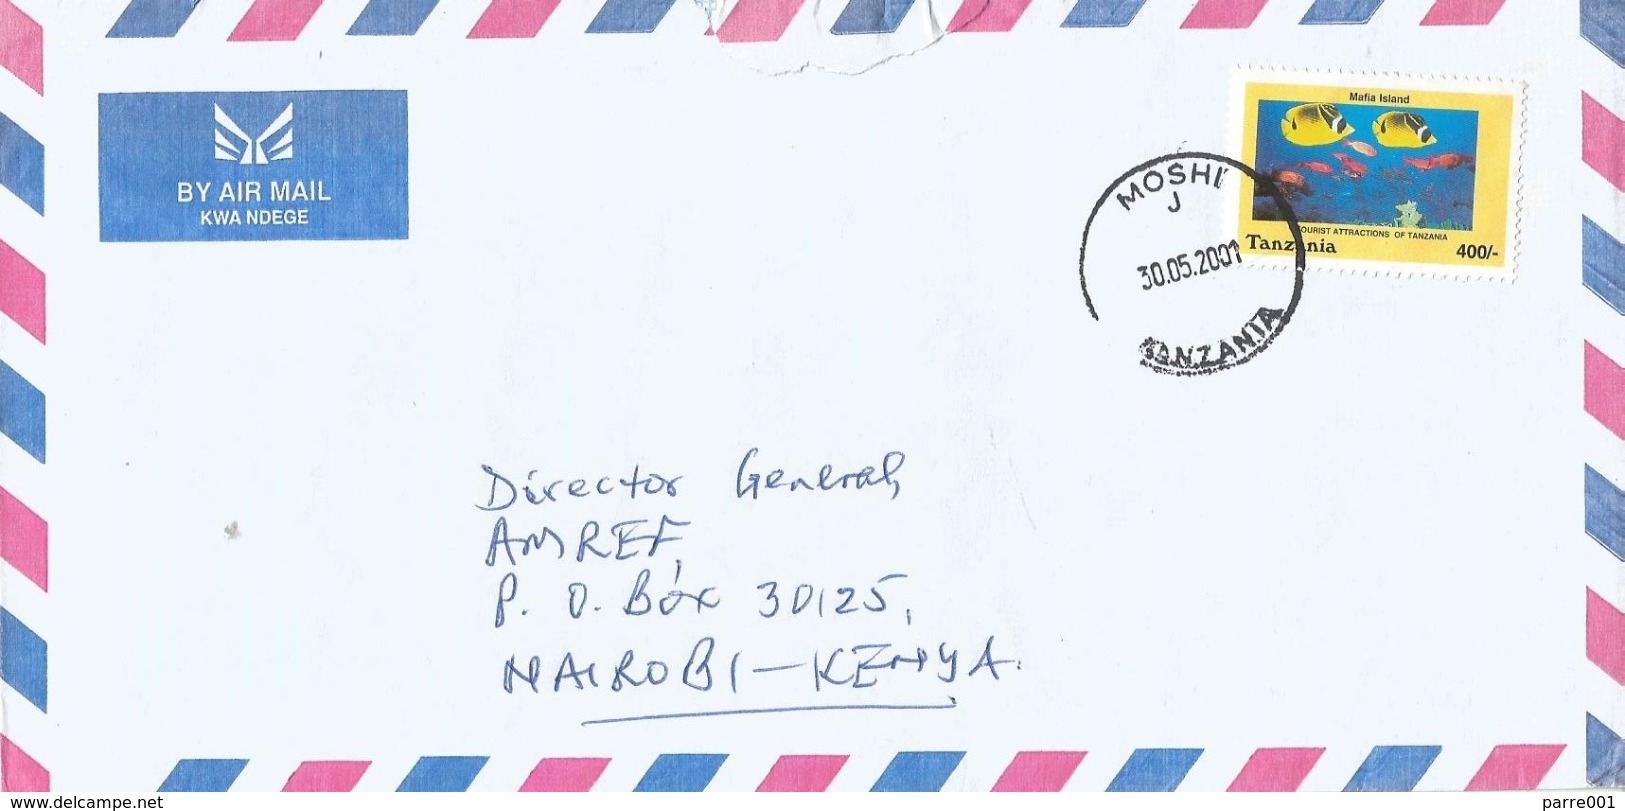 BY AIR MAIL
KWA NDEGE
Mafia Island
OURIST ATTRACTIONS OF TANZANIA
Tanzania
400/-
MOSHI
J
30.05.2001
TANZANIA
Director General,
AMREF,
P. O. Box 30125,
NAIROBI - KENYA.
www.delcampe.net
parre001